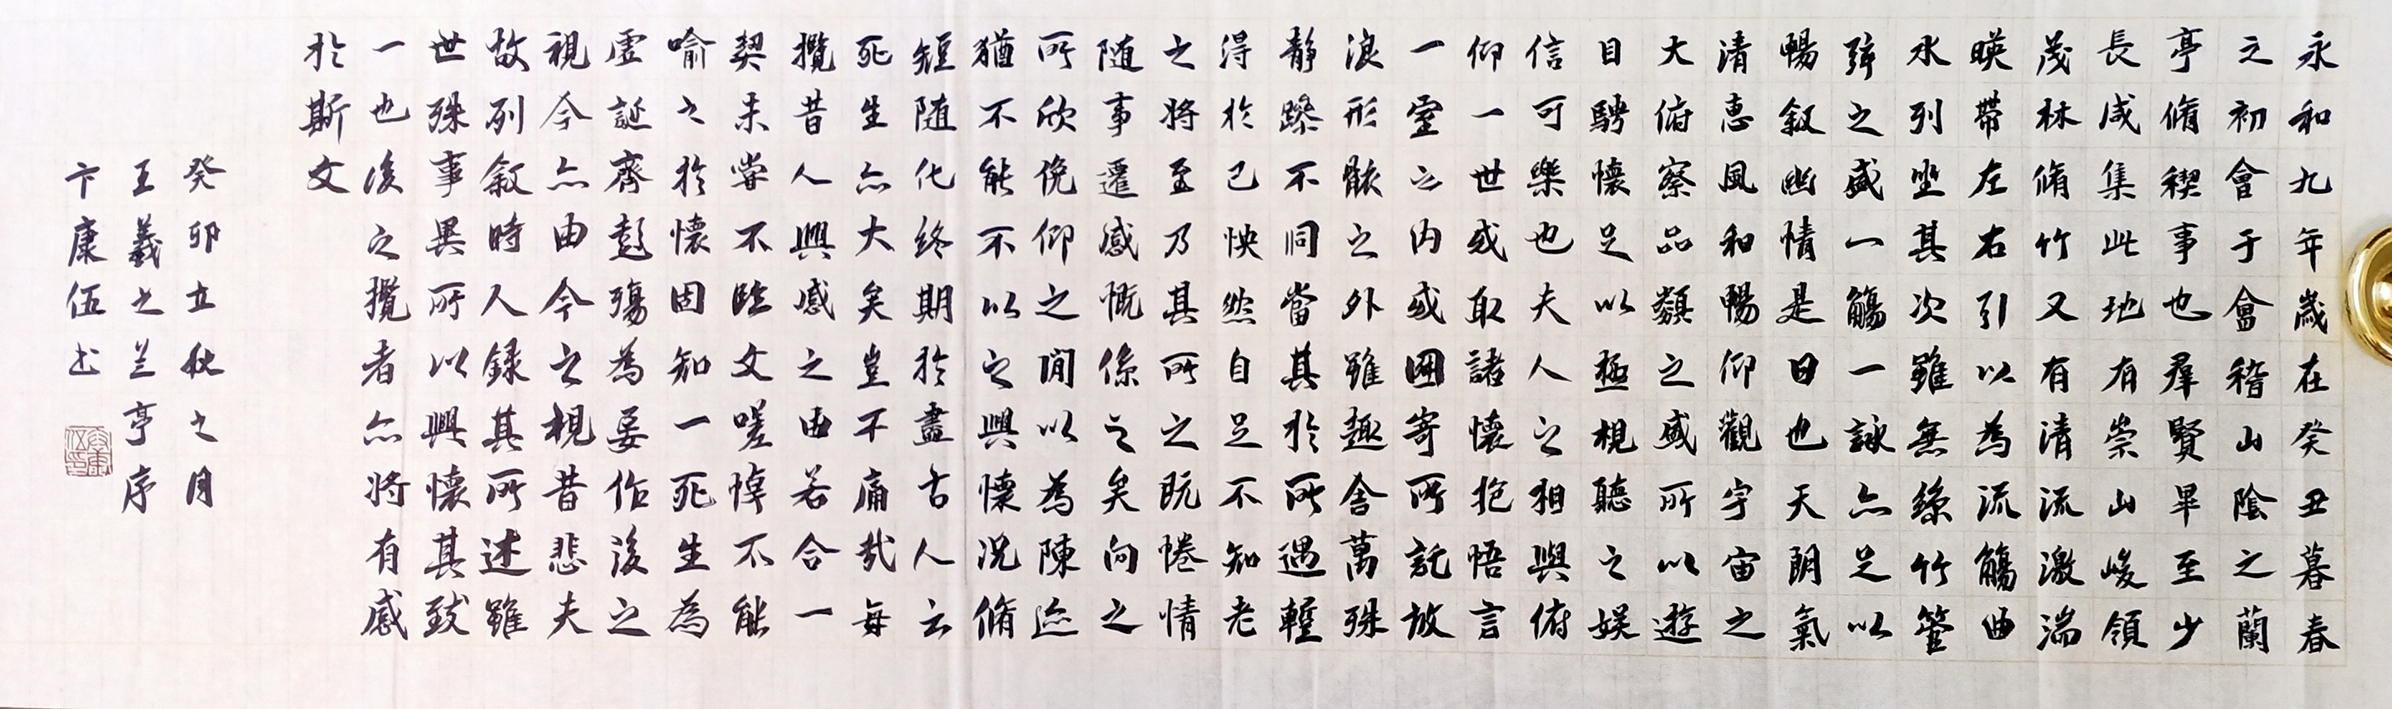 永和九年歲在癸丑暮春
之初會于會稽山陰之蘭
亭脩稧事也羣賢畢至少
長咸集此地有崇山峻領
茂林脩竹又有清流激湍
暎帶左右引以為流觴曲
水列坐其次雖無絲竹管
弦之盛一觴一詠亦足以
暢敘幽情是日也天朗氣
清惠風和暢仰觀宇宙之
大俯察品類之盛所以遊
目騁懷足以極視聽之娛
信可樂也夫人之相與俯
仰一世或取諸懷抱悟言
一室之內或因寄所託放
浪形骸之外雖趣舍萬殊
靜躁不同當其於所遇暫
得於己怏然自足不知老
之將至乃其所之既惓情
隨事遷感慨係之矣向之
所欣俛仰之間以為陳迹
猶不能不以之興懷況脩
短隨化終期於盡古人云
死生亦大矣豈不痛哉每
攬昔人興感之由若合一
契未嘗不臨文嗟悼不能
喻之於懷固知一死生為
虛誕齊彭殤為妄作後之
視今亦由今之視昔悲夫
故列敘時人錄其所述雖
世殊事異所以興懷其致
一也後之攬者亦將有感
於斯文
癸卯立秋之月
王羲之兰亭序
卞康伍书